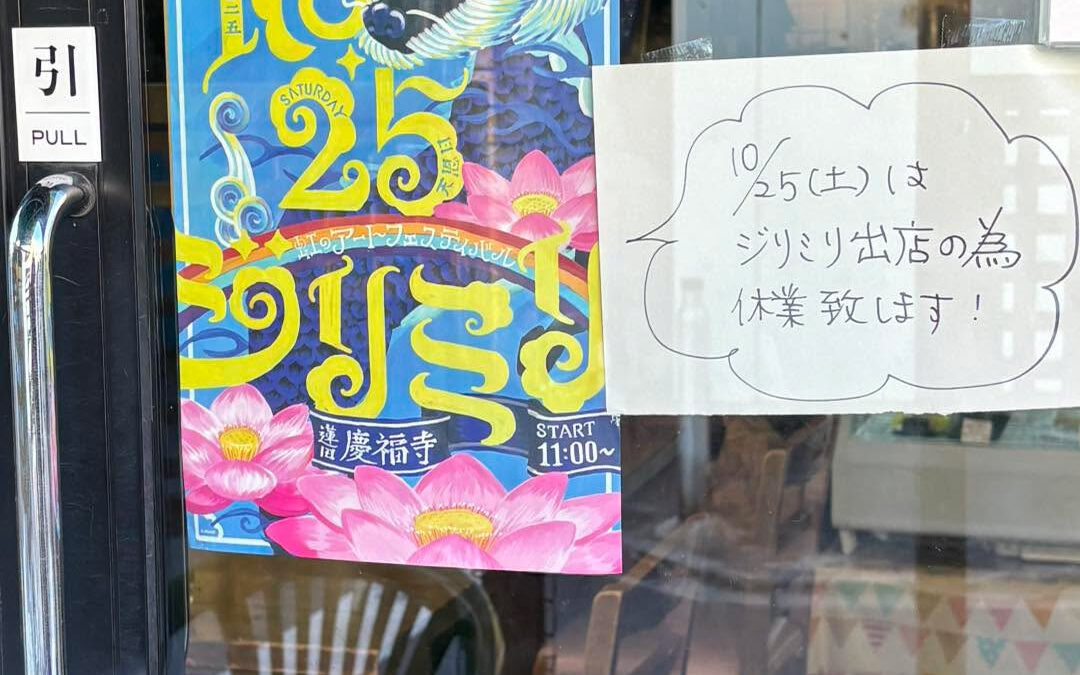 引
PULL
二五
SATURDAY
25
天恩日
虹のアートフェスティバル
ジリミリ
蓮田 慶福寺
START
11:00～
10/25(土)は
ジリミリ出店の為
休業致します!